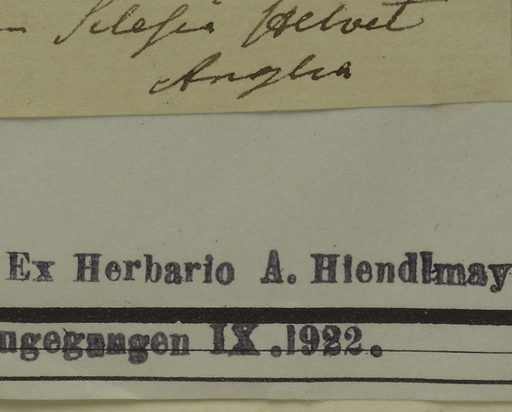 Silesia Helvet
Anglia
Ex Herbario A. Hiendlmay
ngegangen IX.1922.